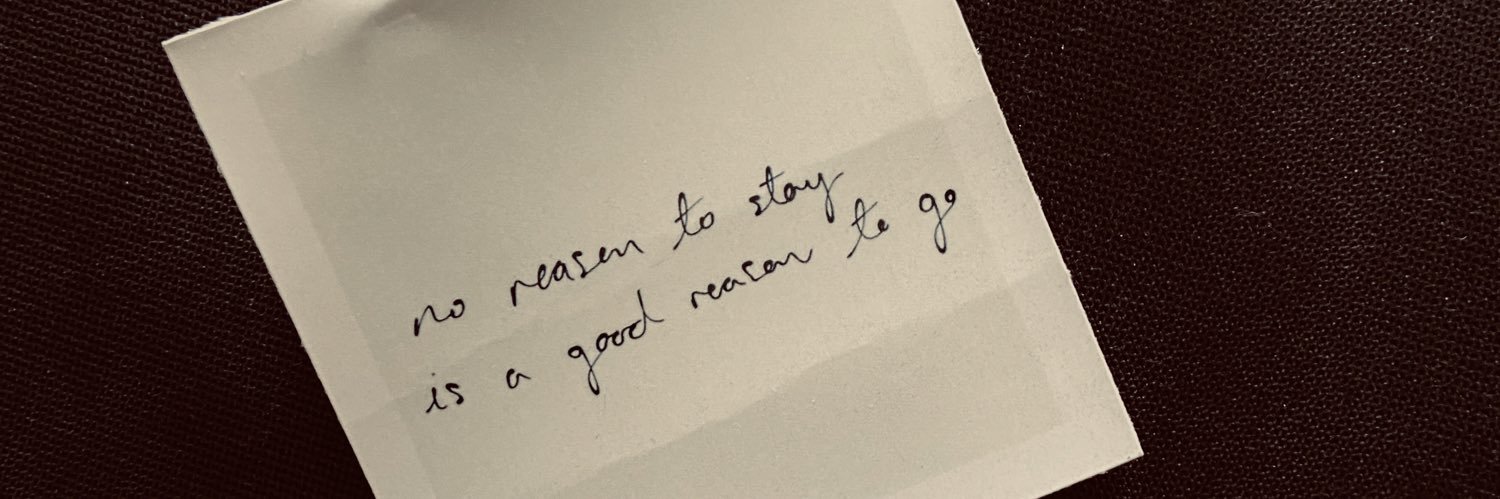 no reason to stay
is a good reason to go